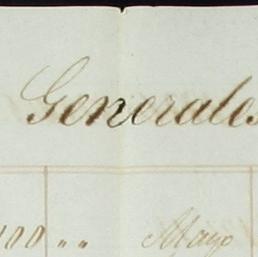 Generales
100 " " Mayo